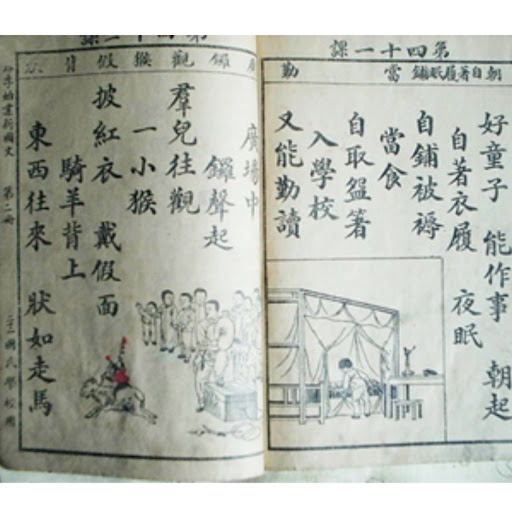 第四十一課
朝自著履眠鋪 當 勤
好童子 能作事 朝起
自著衣履 夜眠
自鋪被褥
當食
自取盌箸
入學校
又能勤讀
第四十二課
廣 鑼 觀 猴 假 背 狀
廣場中
鑼聲起
羣兒往觀
一小猴
披紅衣 戴假面
騎羊背上
東西往來 狀如走馬
始業新國文 第二冊 國民學校用